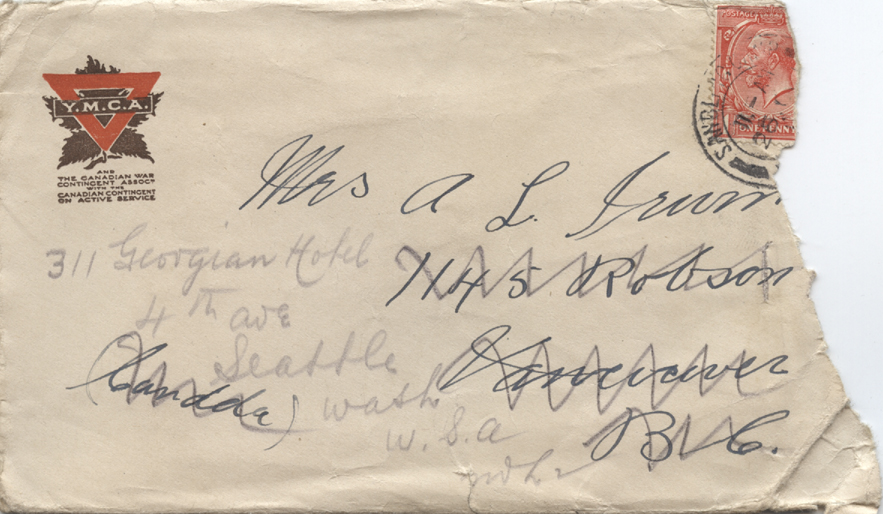 Y.M.C.A.
AND
THE CANADIAN WAR
CONTINGENT ASSOCT
WITH THE
CANADIAN CONTINGENT
ON ACTIVE SERVICE
POSTAGE
ONE PENNY
Mrs A L. Irwin
1145 Robson
Vancouver
B.C.
(Canada)
311 Georgian Hotel
4th ave
Seattle
Wash
U.S.a